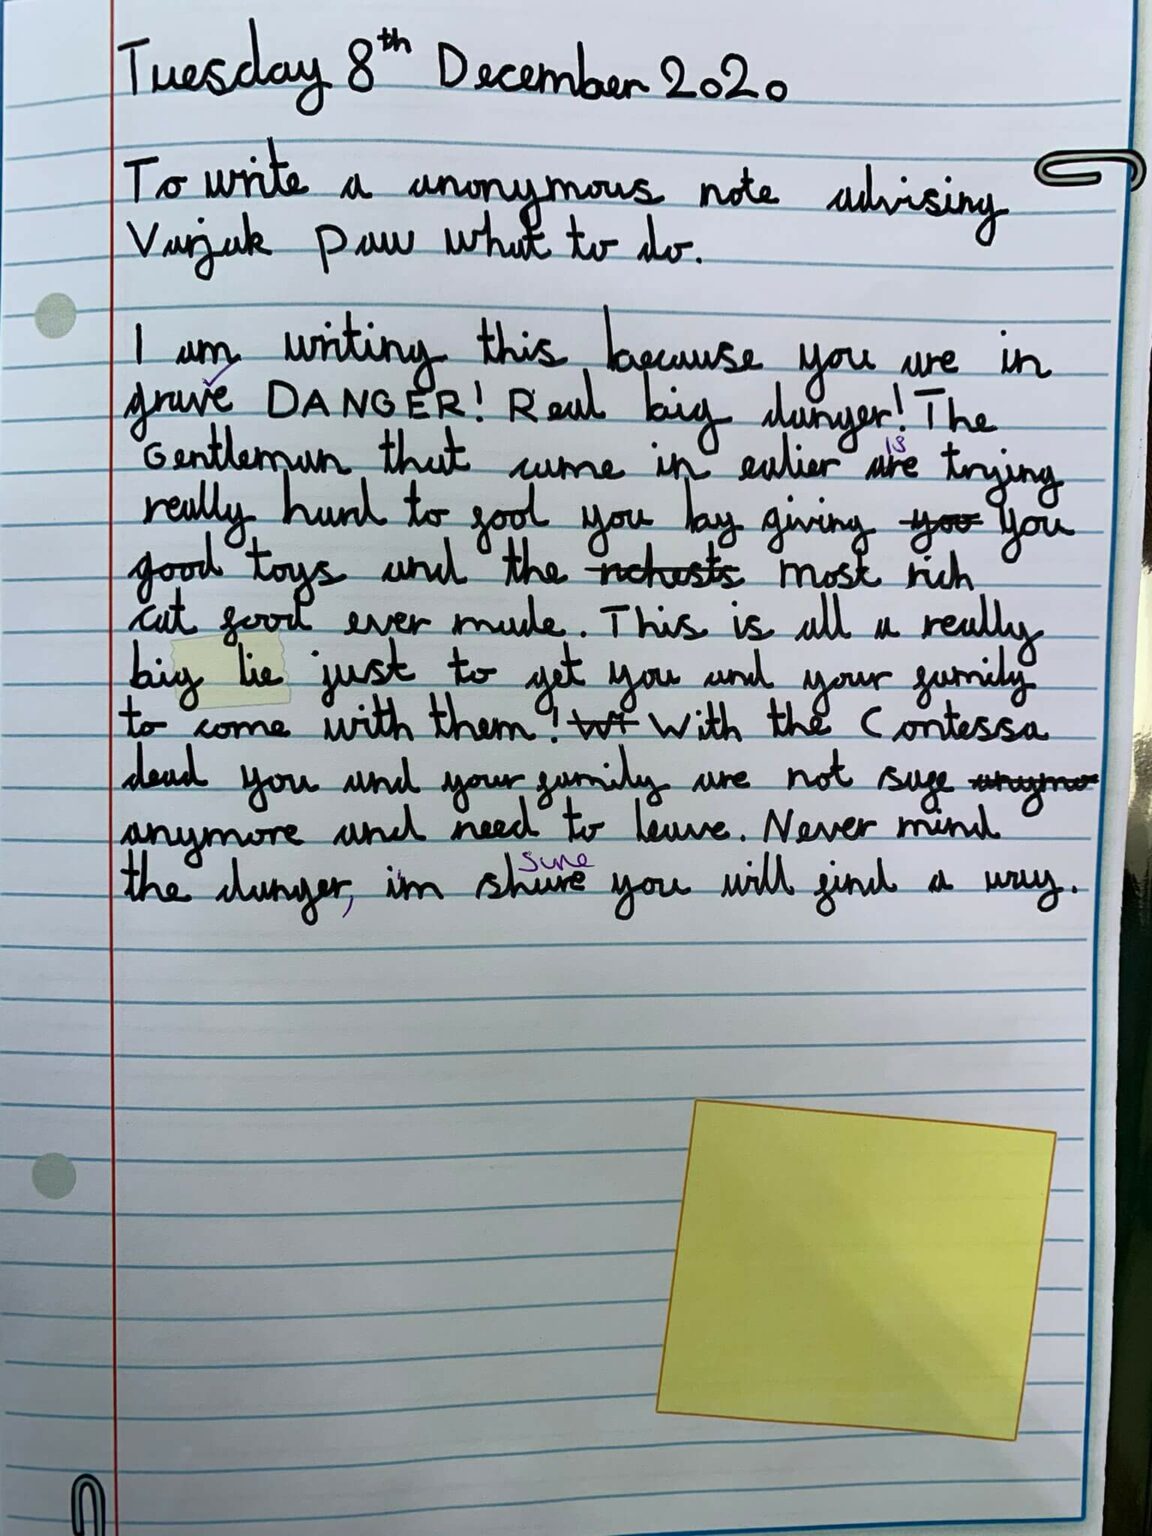 Tuesday 8th December 2020
To write a anonymous note advising
Varjak paw what to do.
I am writing this because you are in
grave DANGER! Real big danger! The
Gentleman that came in ealier are is trying
really hard to fool you by giving you you
good toys and the richests most rich
cat food ever made. This is all a really
big lie just to get you and your family
to come with them! Wi With the Contessa
dead you and your family are not safe anymo
anymore and need to leave. Never mind
the danger, im shure sure you will find a way.